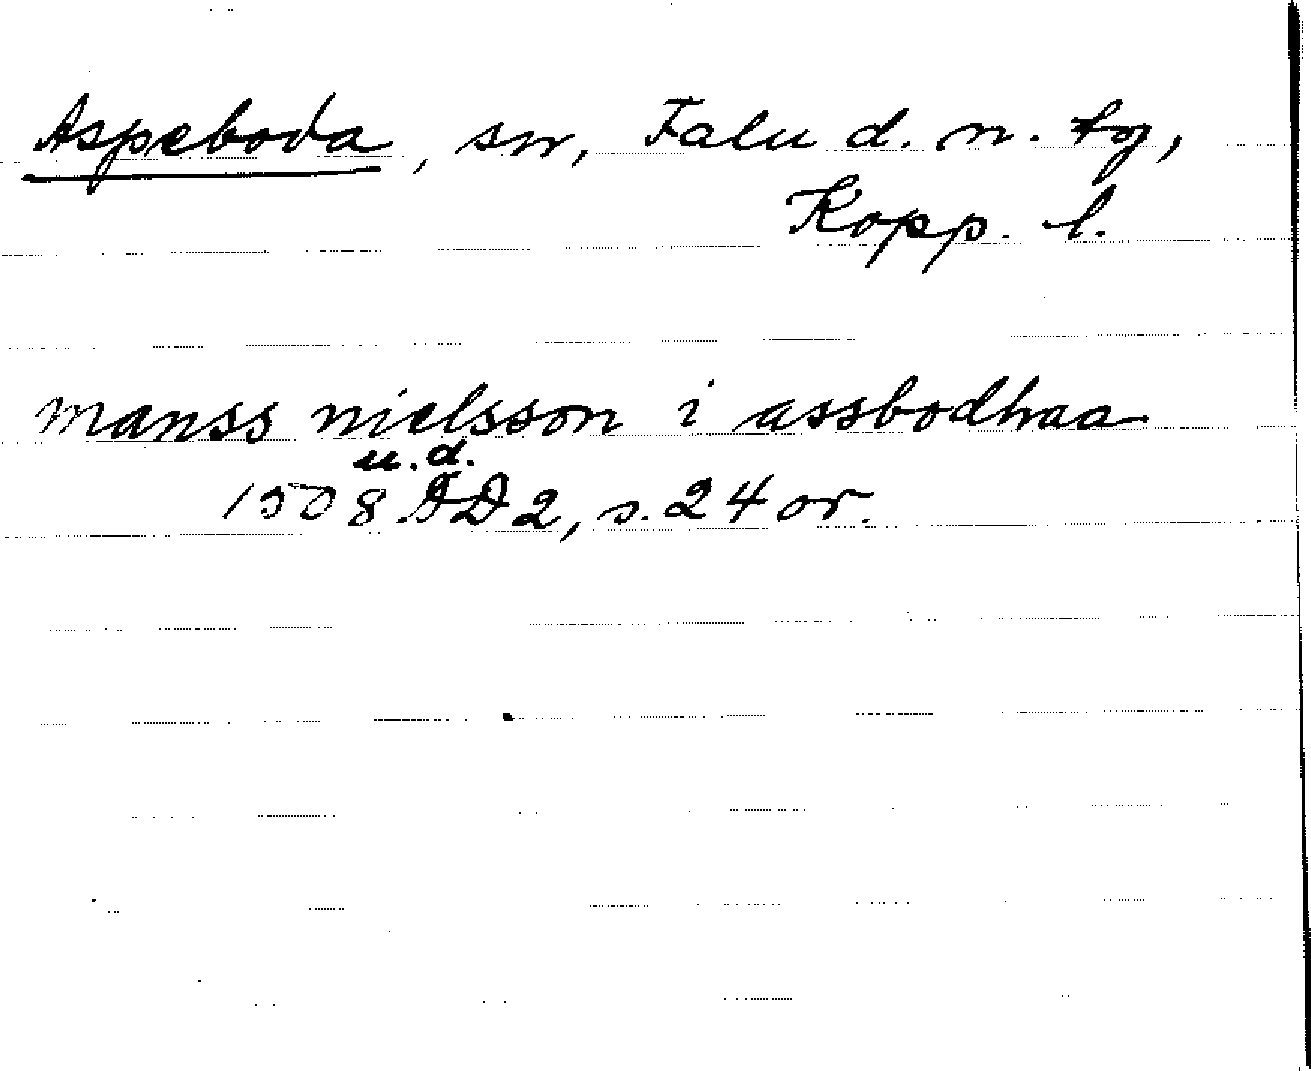 Aspeboda, sn, Falu d. n. tg,
Kopp. l.
manss nielsson i assbodhaa
u. d.
1508 DD 2, s. 24 or.